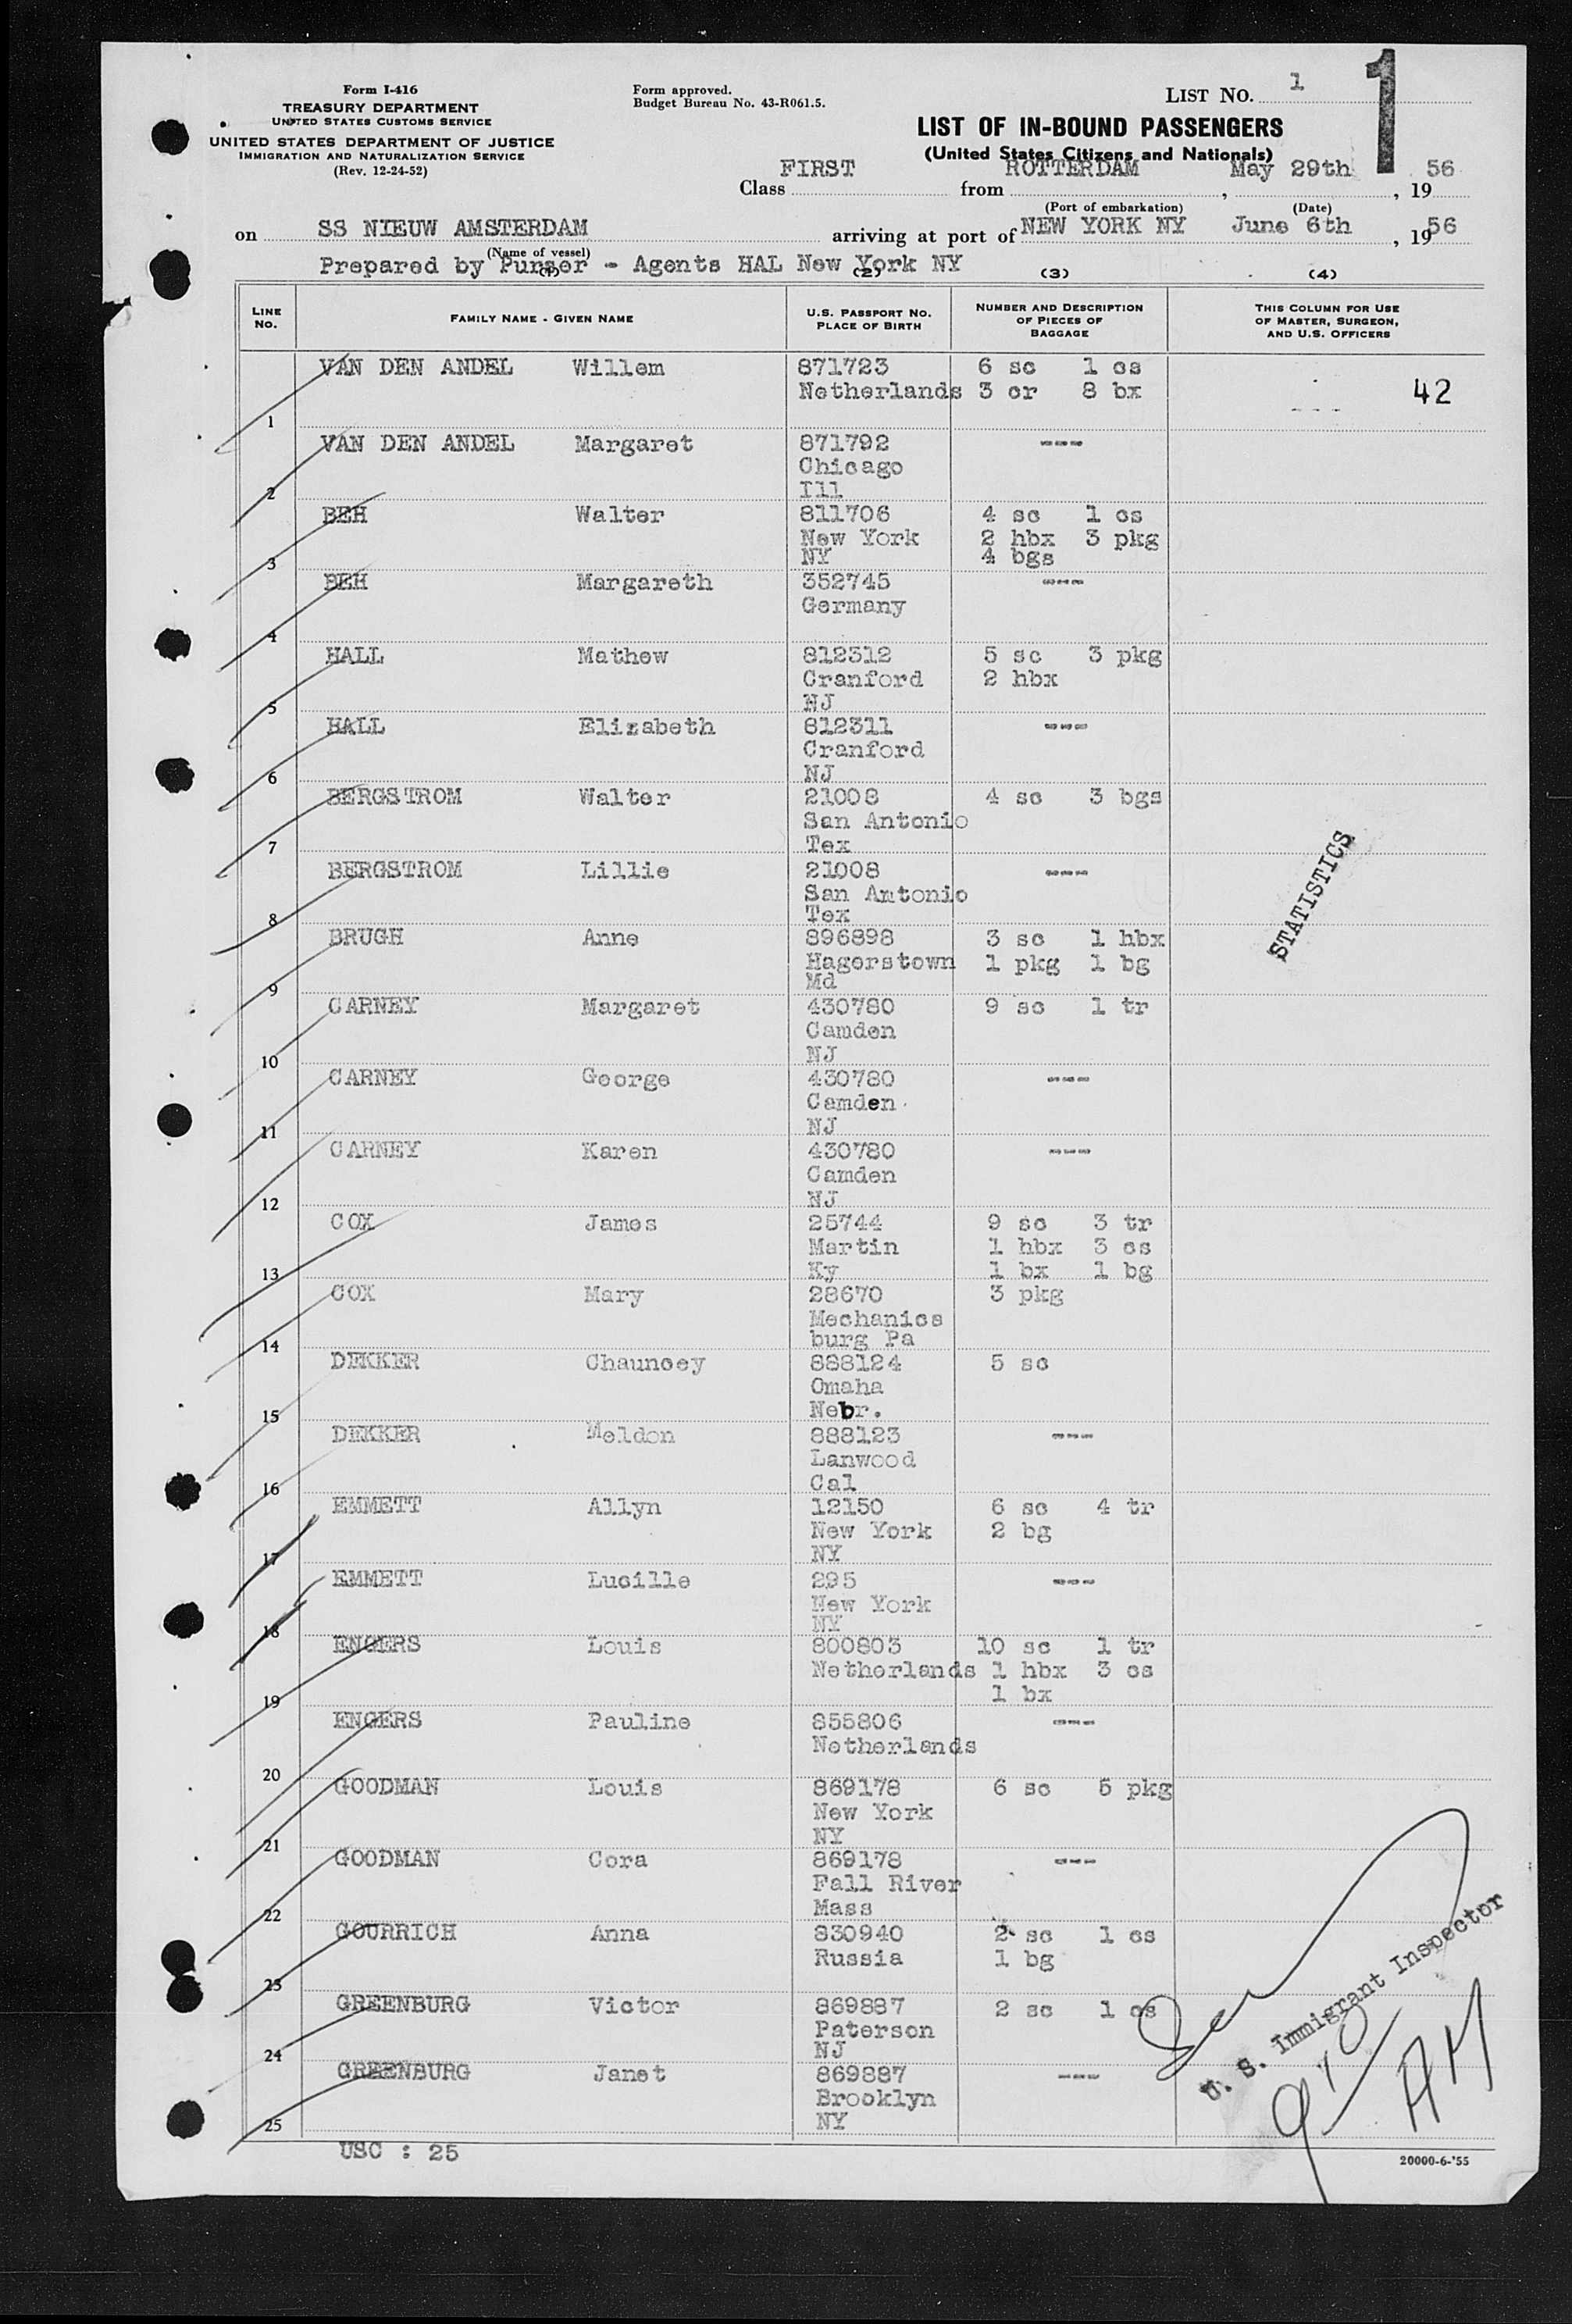 Form I-416
TREASURY DEPARTMENT
UNITED STATES CUSTOMS SERVICE
UNITED STATES DEPARTMENT OF JUSTICE
IMMIGRATION AND NATURALIZATION SERVICE
(Rev. 12-24-52)
Form approved.
Budget Bureau No. 43-R061.5.
LIST NO. 1
1
LIST OF IN-BOUND PASSENGERS
(United States Citizens and Nationals)
Class FIRST from ROTTERDAM, May 29th, 1956
(Port of embarkation) (Date)
on SS NIEUW AMSTERDAM arriving at port of NEW YORK NY June 6th, 1956
(Name of vessel)
Prepared by Purser - Agents HAL New York NY
(1) (2) (3) (4)
LINE NO. FAMILY NAME - GIVEN NAME U.S. PASSPORT NO. PLACE OF BIRTH NUMBER AND DESCRIPTION OF PIECES OF BAGGAGE THIS COLUMN FOR USE OF MASTER, SURGEON, AND U.S. OFFICERS
VAN DEN ANDEL Willem 871723 6 sc 1 cs
Netherlands 3 cr 8 bx 42
1
VAN DEN ANDEL Margaret 871792 ---
Chicago
2 Ill
BEH Walter 811706 4 sc 1 cs
New York 2 hbx 3 pkg
3 NY 4 bgs
BEH Margareth 352745 ---
Germany
4
HALL Mathew 812312 5 sc 3 pkg
Cranford 2 hbx
5 NJ
HALL Elizabeth 812311 ---
Cranford
6 NJ
BERGSTROM Walter 21008 4 sc 3 bgs
San Antonio
7 Tex
BERGSTROM Lillie 21008 ---
San Antonio
8 Tex
STATISTICS
BRUGH Anne 896898 3 sc 1 hbx
Hagerstown 1 pkg 1 bg
9 Md
CARNEY Margaret 430780 9 sc 1 tr
Camden
10 NJ
CARNEY George 430780 ---
Camden
11 NJ
CARNEY Karen 430780 ---
Camden
12 NJ
COX James 25744 9 sc 3 tr
Martin 1 hbx 3 cs
13 Ky 1 bx 1 bg
COX Mary 28670 3 pkg
Mechanics
14 burg Pa
DEKKER Chauncey 888124 5 sc
Omaha
15 Nebr.
DEKKER Meldon 888123 ---
Lanwood
16 Cal
EMMETT Allyn 12150 6 sc 4 tr
New York 2 bg
17 NY
EMMETT Lucille 295 ---
New York
18 NY
ENGERS Louis 800803 10 sc 1 tr
Netherlands 1 hbx 3 cs
19 1 bx
ENGERS Pauline 855806 ---
Netherlands
20
GOODMAN Louis 869178 6 sc 5 pkg
New York
21 NY
GOODMAN Cora 869178 ---
Fall River
22 Mass
GOURRICH Anna 830940 2 sc 1 cs
Russia 1 bg
23
GREENBURG Victor 869887 2 sc 1 cs
Paterson
24 NJ
GREENBURG Janet 869887 ---
Brooklyn
25 NY
U. S. Immigrant Inspector
USC : 25
20000-6-'55